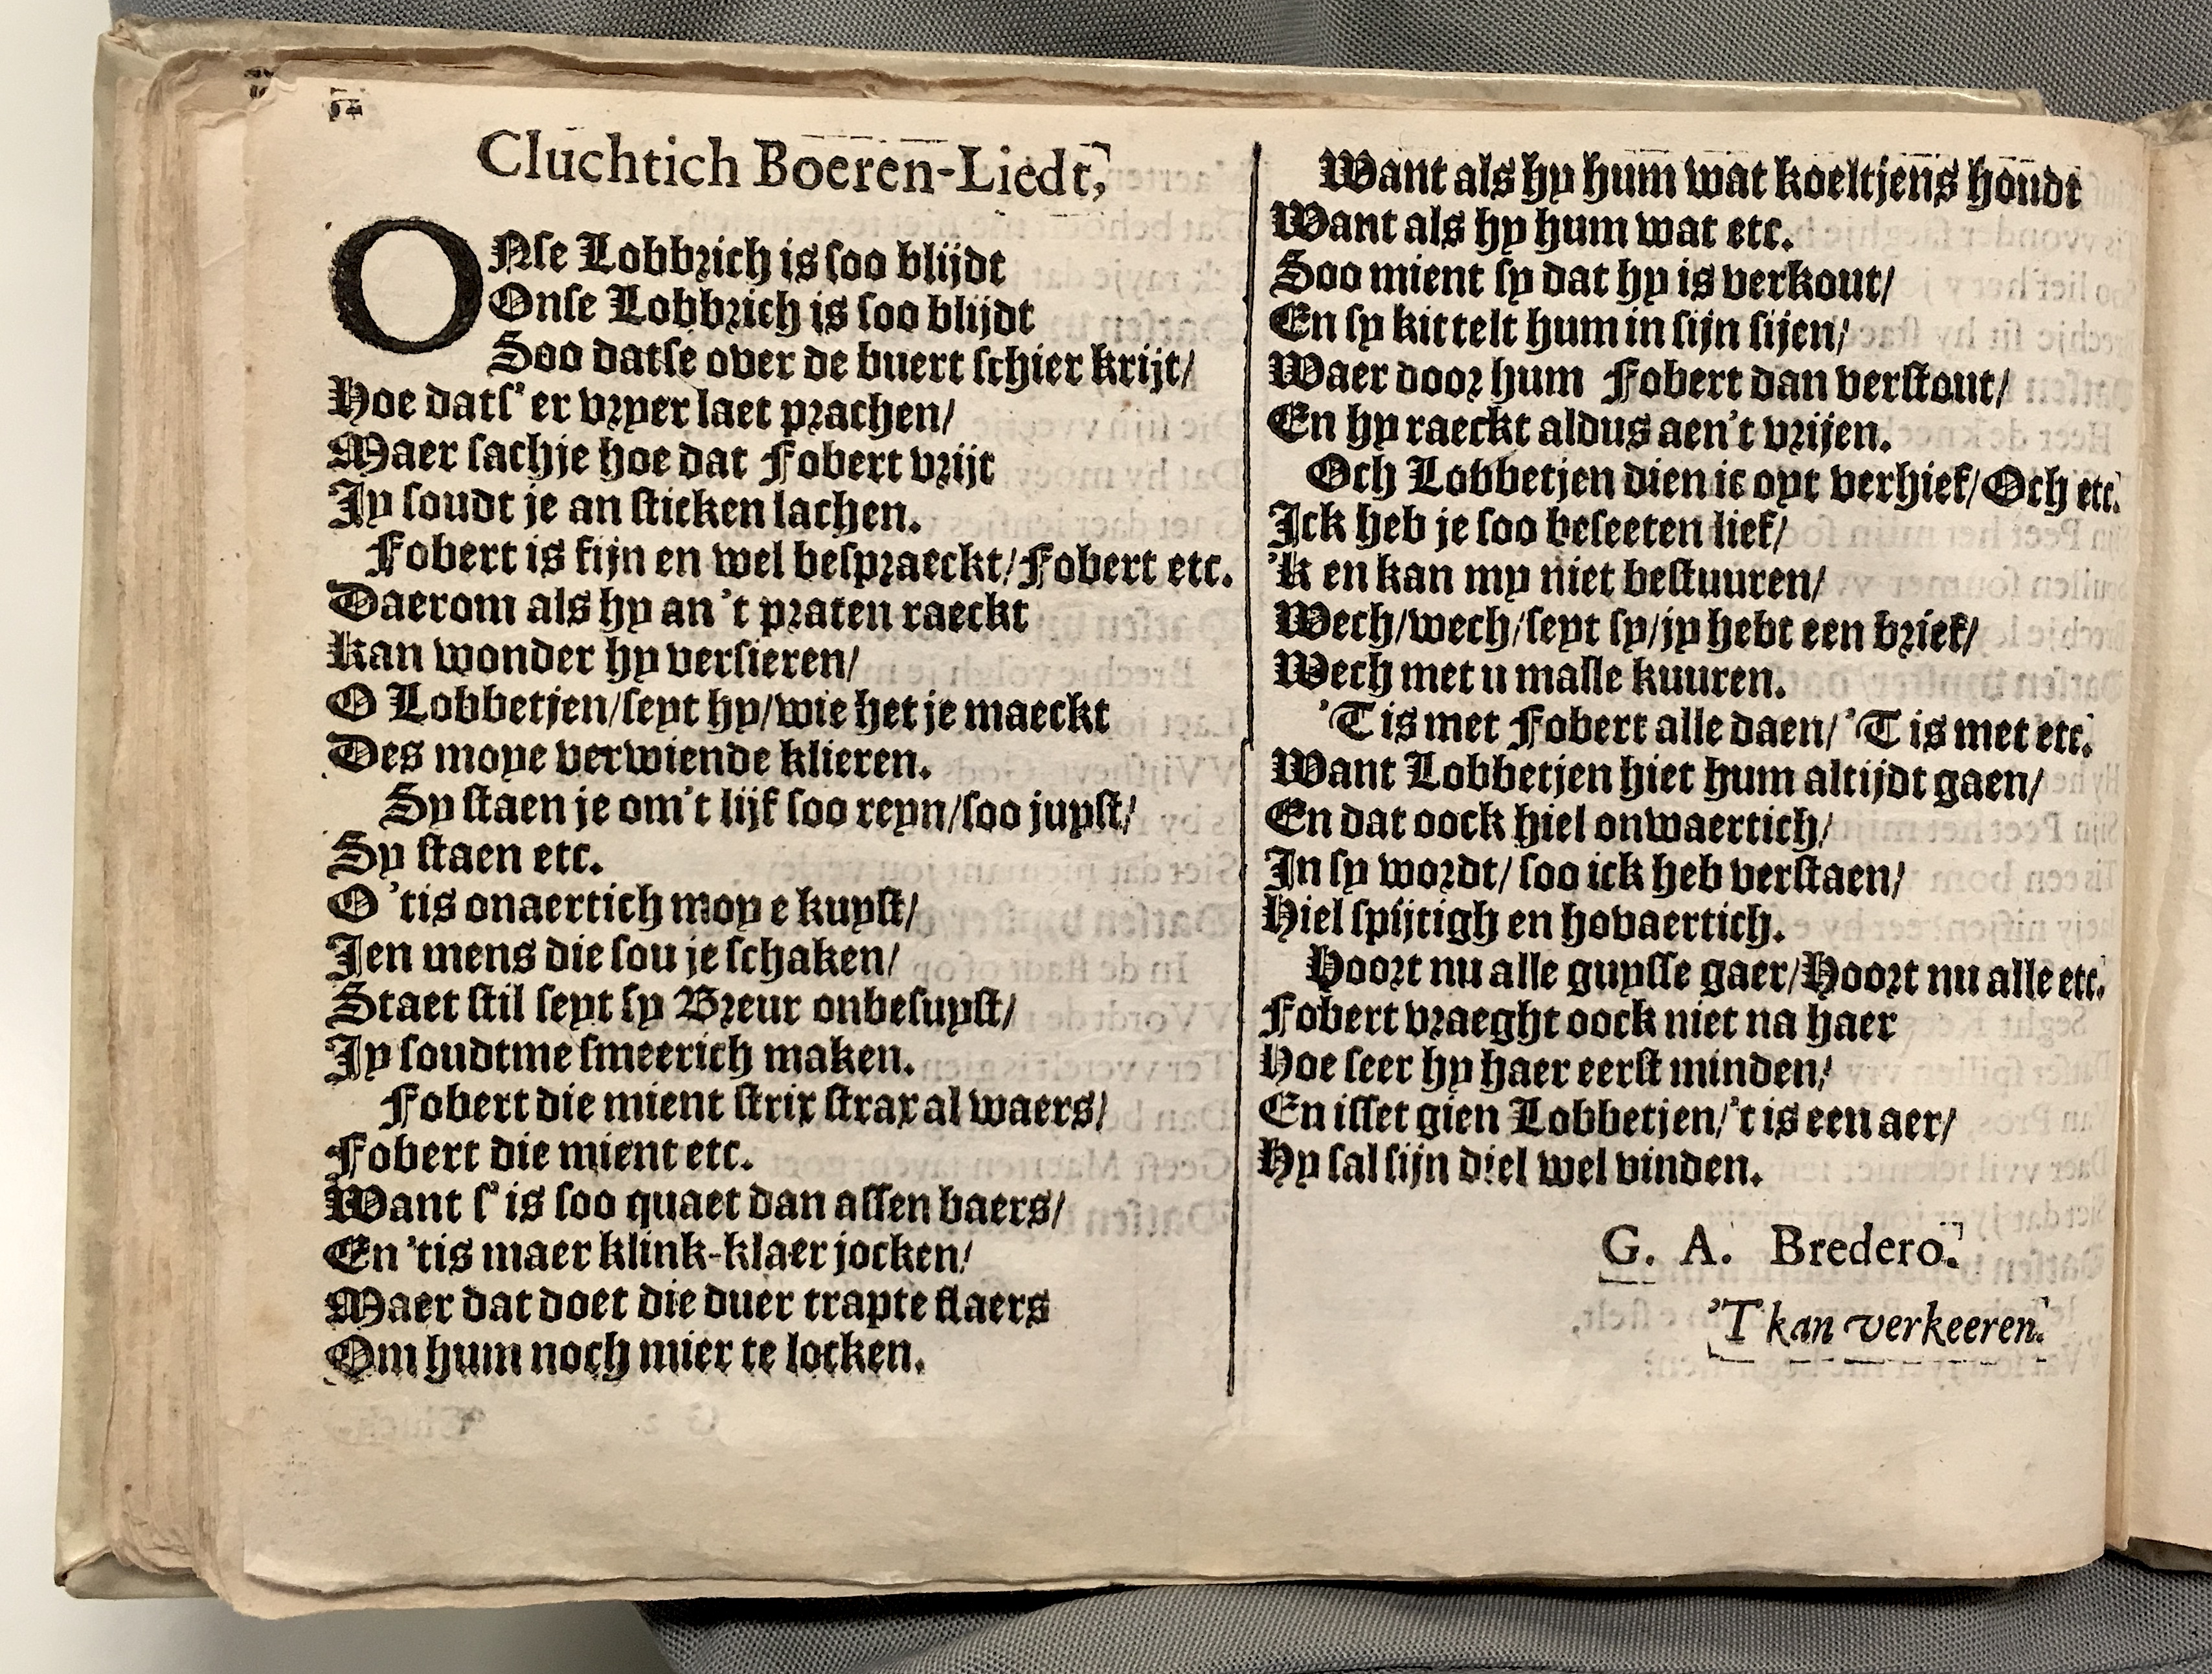 52
Cluchtich Boeren-Liedt,
ONse Lobbrich is soo blijdt
Onse Lobbrich is soo blijdt
Soo datse over de buert schier krijt/
Hoe dats' er vryer laet prachen/
Maer sachje hoe dat Fobert vrijt
Jy soudt je an sticken lachen.
Fobert is fijn en wel bespraeckt/Fobert etc.
Daerom als hy an 't praten raeckt
Kan wonder hy versieren/
O Lobbetjen/seyt hy/wie het je maeckt
Des moye verwiende klieren.
Sy staen je om't lijf soo reyn/soo juyst/
Sy staen etc.
O 'tis onaertich moy e kuyst/
Jen mens die sou je schaken/
Staet stil seyt sy Breur onbesuyst/
Jy soudtme smeerich maken.
Fobert die mient strix strax al waers/
Fobert die mient etc.
Want s' is soo quaet dan assen baers/
En 'tis maer klink-klaer jocken/
Maer dat doet die duer trapte flaers
Om hum noch mier te locken.
Want als hy hum wat koeltjens houdt
Want als hy hum wat etc.
Soo mient sy dat hy is verkout/
En sy kittelt hum in sijn sijen/
Waer door hum Fobert dan verstout/
En hy raeckt aldus aen't vrijen.
Och Lobbetjen dien ic oyt verhief/Och etc.
Ick heb je soo beseeten lief/
'K en kan my niet bestuuren/
Wech/wech/seyt sy/jy hebt een brief/
Wech met u malle kuuren.
'T is met Fobert alle daen/ 'T is met etc.
Want Lobbetjen hiet hum altijdt gaen/
En dat oock hiel onwaertich/
In sy wordt/ soo ick heb verstaen/
Hiel spijtigh en hovaertich.
Hoort nu alle guysse gaer/Hoort nu alle etc.
Fobert vraeght oock niet na haer
Hoe seer hy haer eerst minden/
En isset gien Lobbetjen/'t is een aer/
Hy sal sijn diel wel vinden.
G. A. Bredero.
'T kan verkeeren.